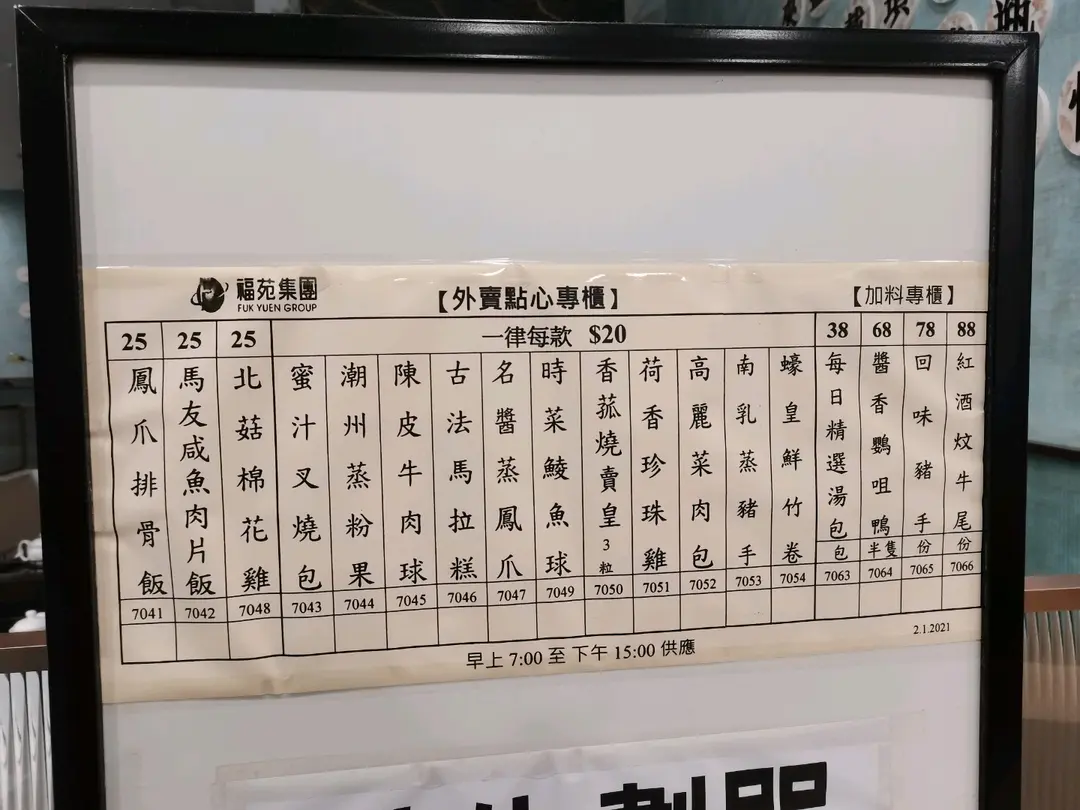 福苑集團
FUK YUEN GROUP
【外賣點心專櫃】
【加料專櫃】
25 25 25 一律每款 $20 38 68 78 88
鳳爪排骨飯 7041
馬友咸魚肉片飯 7042
北菇棉花雞 7048
蜜汁叉燒包 7043
潮州蒸粉果 7044
陳皮牛肉球 7045
古法馬拉糕 7046
名醬蒸鳳爪 7047
時菜鯪魚球 7049
香菰燒賣皇3粒 7050
荷香珍珠雞 7051
高麗菜肉包 7052
南乳蒸豬手 7053
蠔皇鮮竹卷 7054
每日精選湯包 包 7063
醬香鸚咀鴨 半隻 7064
回味豬手 份 7065
紅酒炆牛尾 份 7066
2.1.2021
早上 7:00 至 下午 15:00 供應